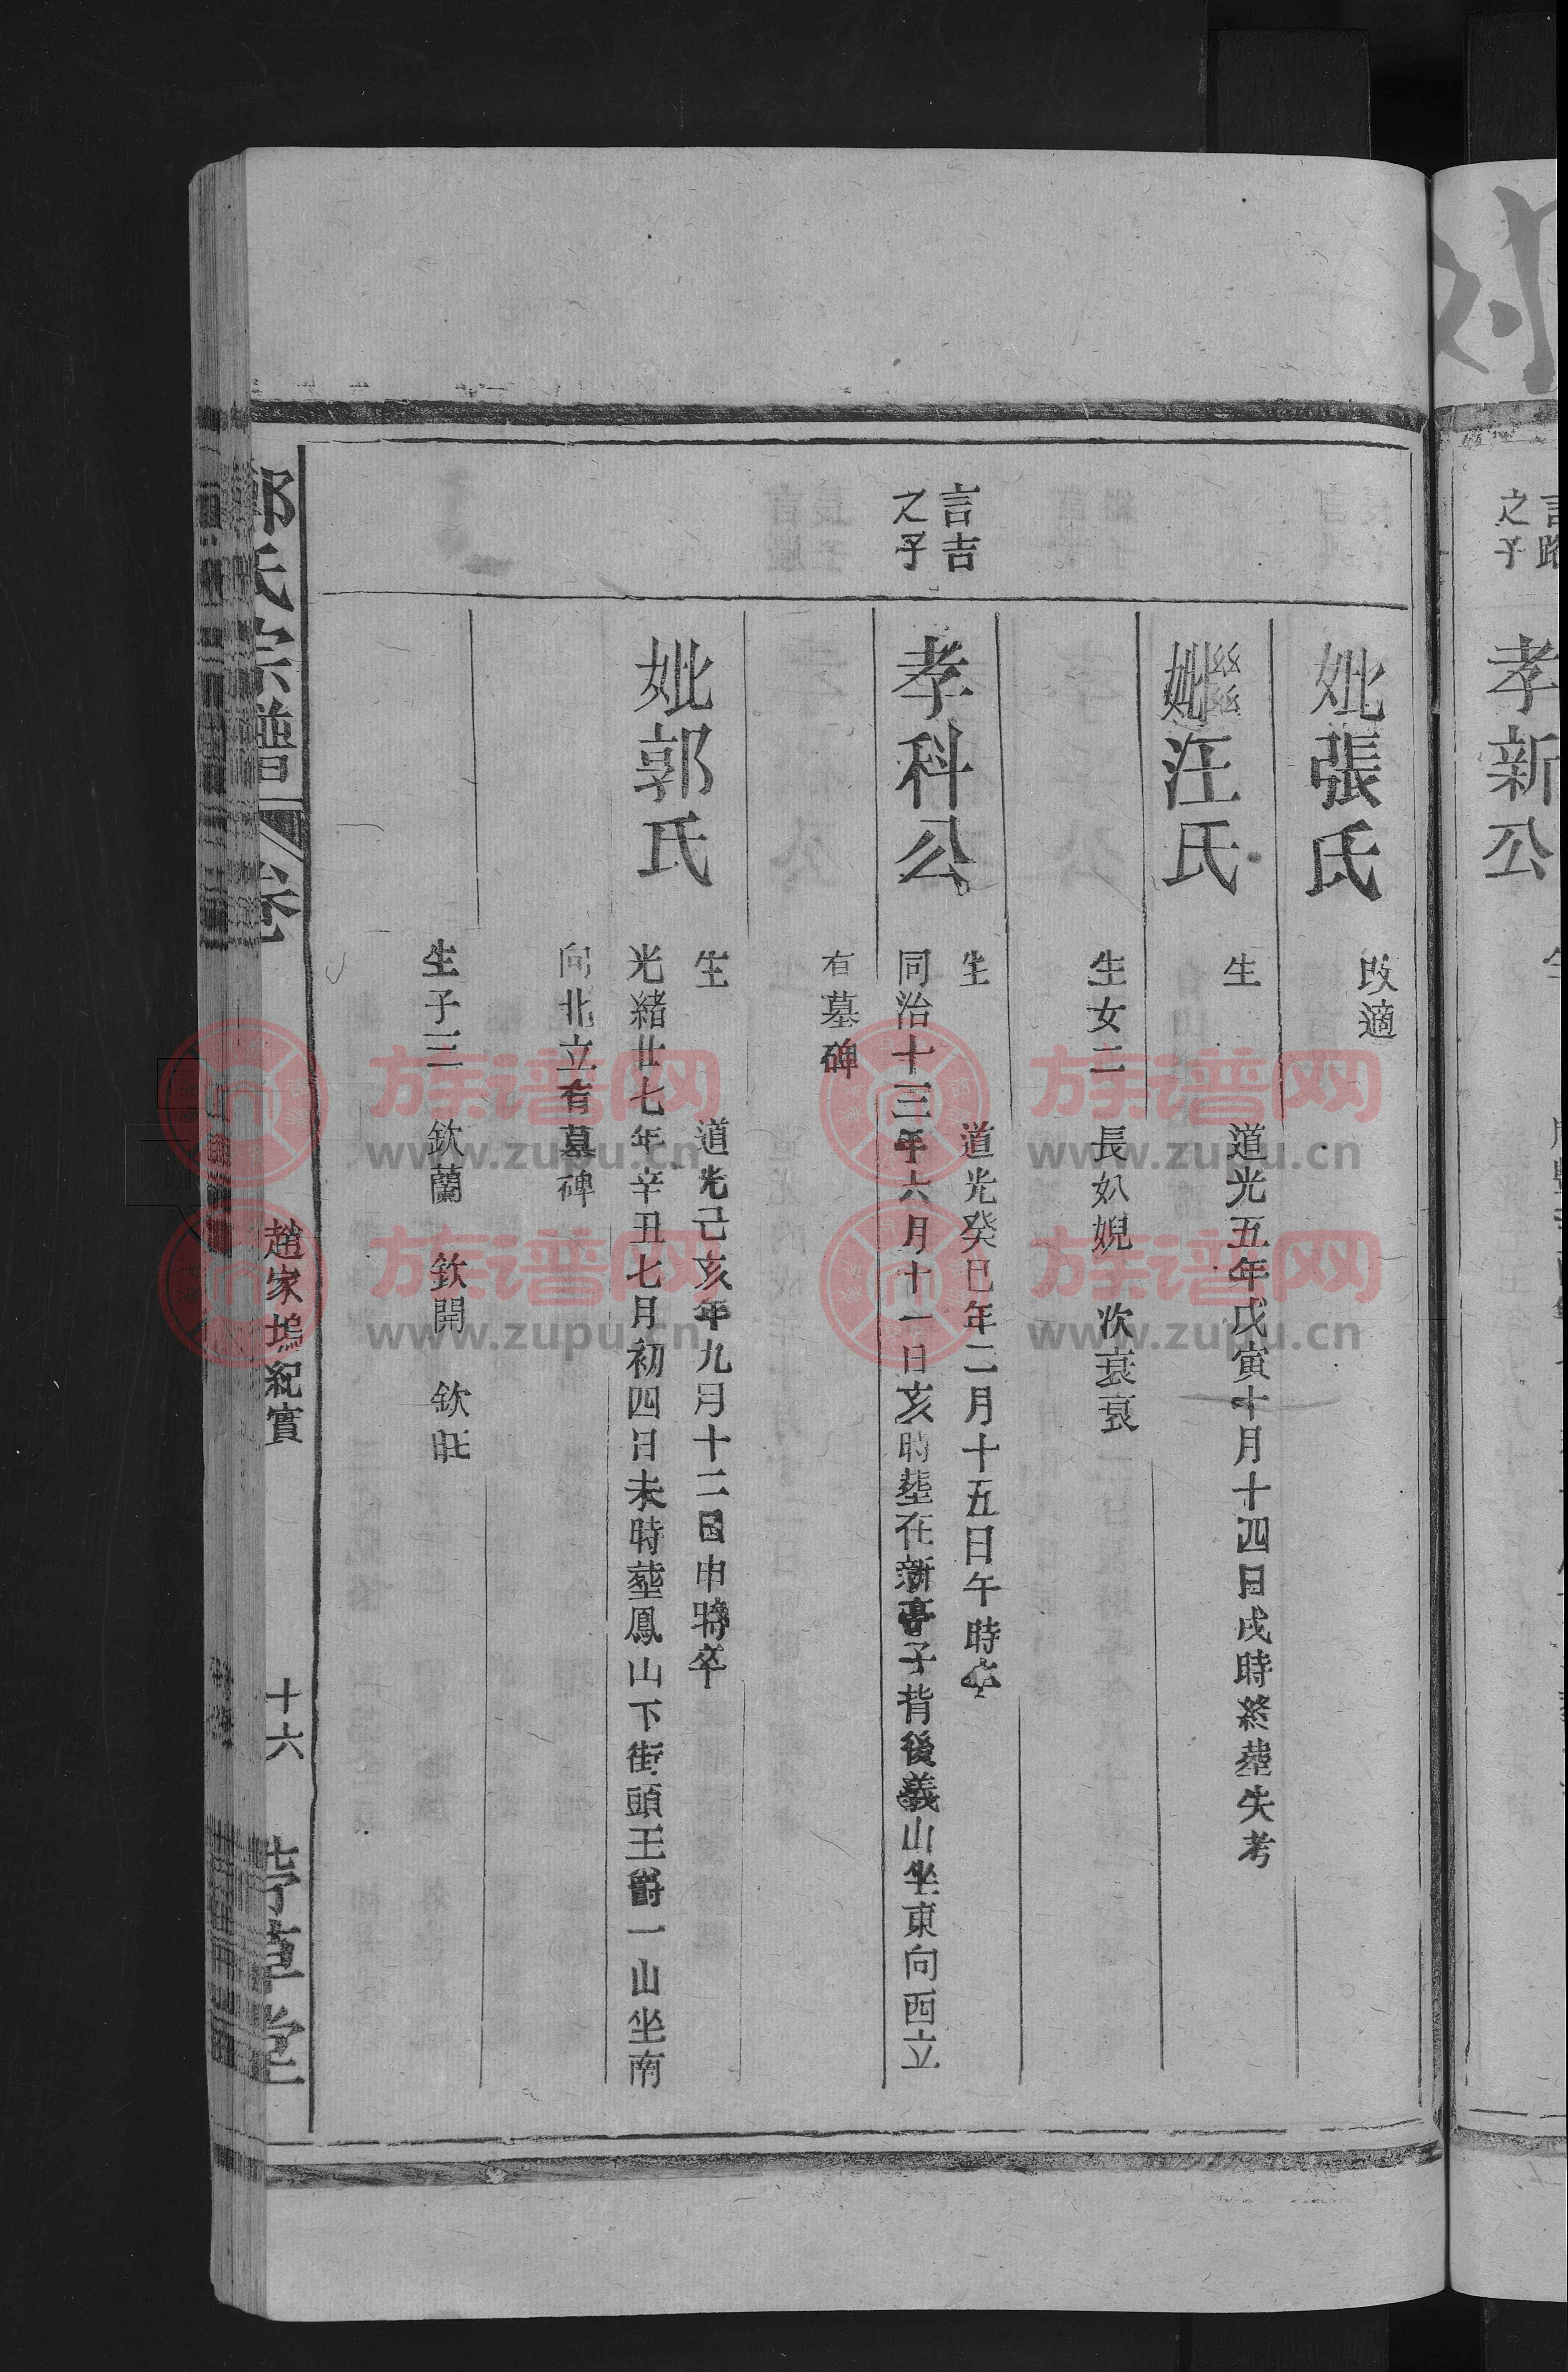 孝新公
言路
之子
妣張氏
改適
繼妣汪氏
生 道光五年戊寅十月十四日戌時終塟失考
生女二 長㚤婗 次衰衰
言吉
之子
孝科公
生 道光癸巳年二月十五日午時卒
同治十三年六月十一日亥時塟在新亭子背後義山坐東向西立
有墓碑
妣郭氏
生 道光己亥年九月十二日申時卒
光緒廿七年辛丑七月初四日未時塟鳳山下街頭王爵一山坐南
向北立有墓碑
生子三 欽蘭 欽開 欽旺
氏宗譜 卷
趙家塢紀實
十六
草堂
族谱网
www.zupu.cn
族谱网
www.zupu.cn
族谱网
www.zupu.cn
族谱网
www.zupu.cn